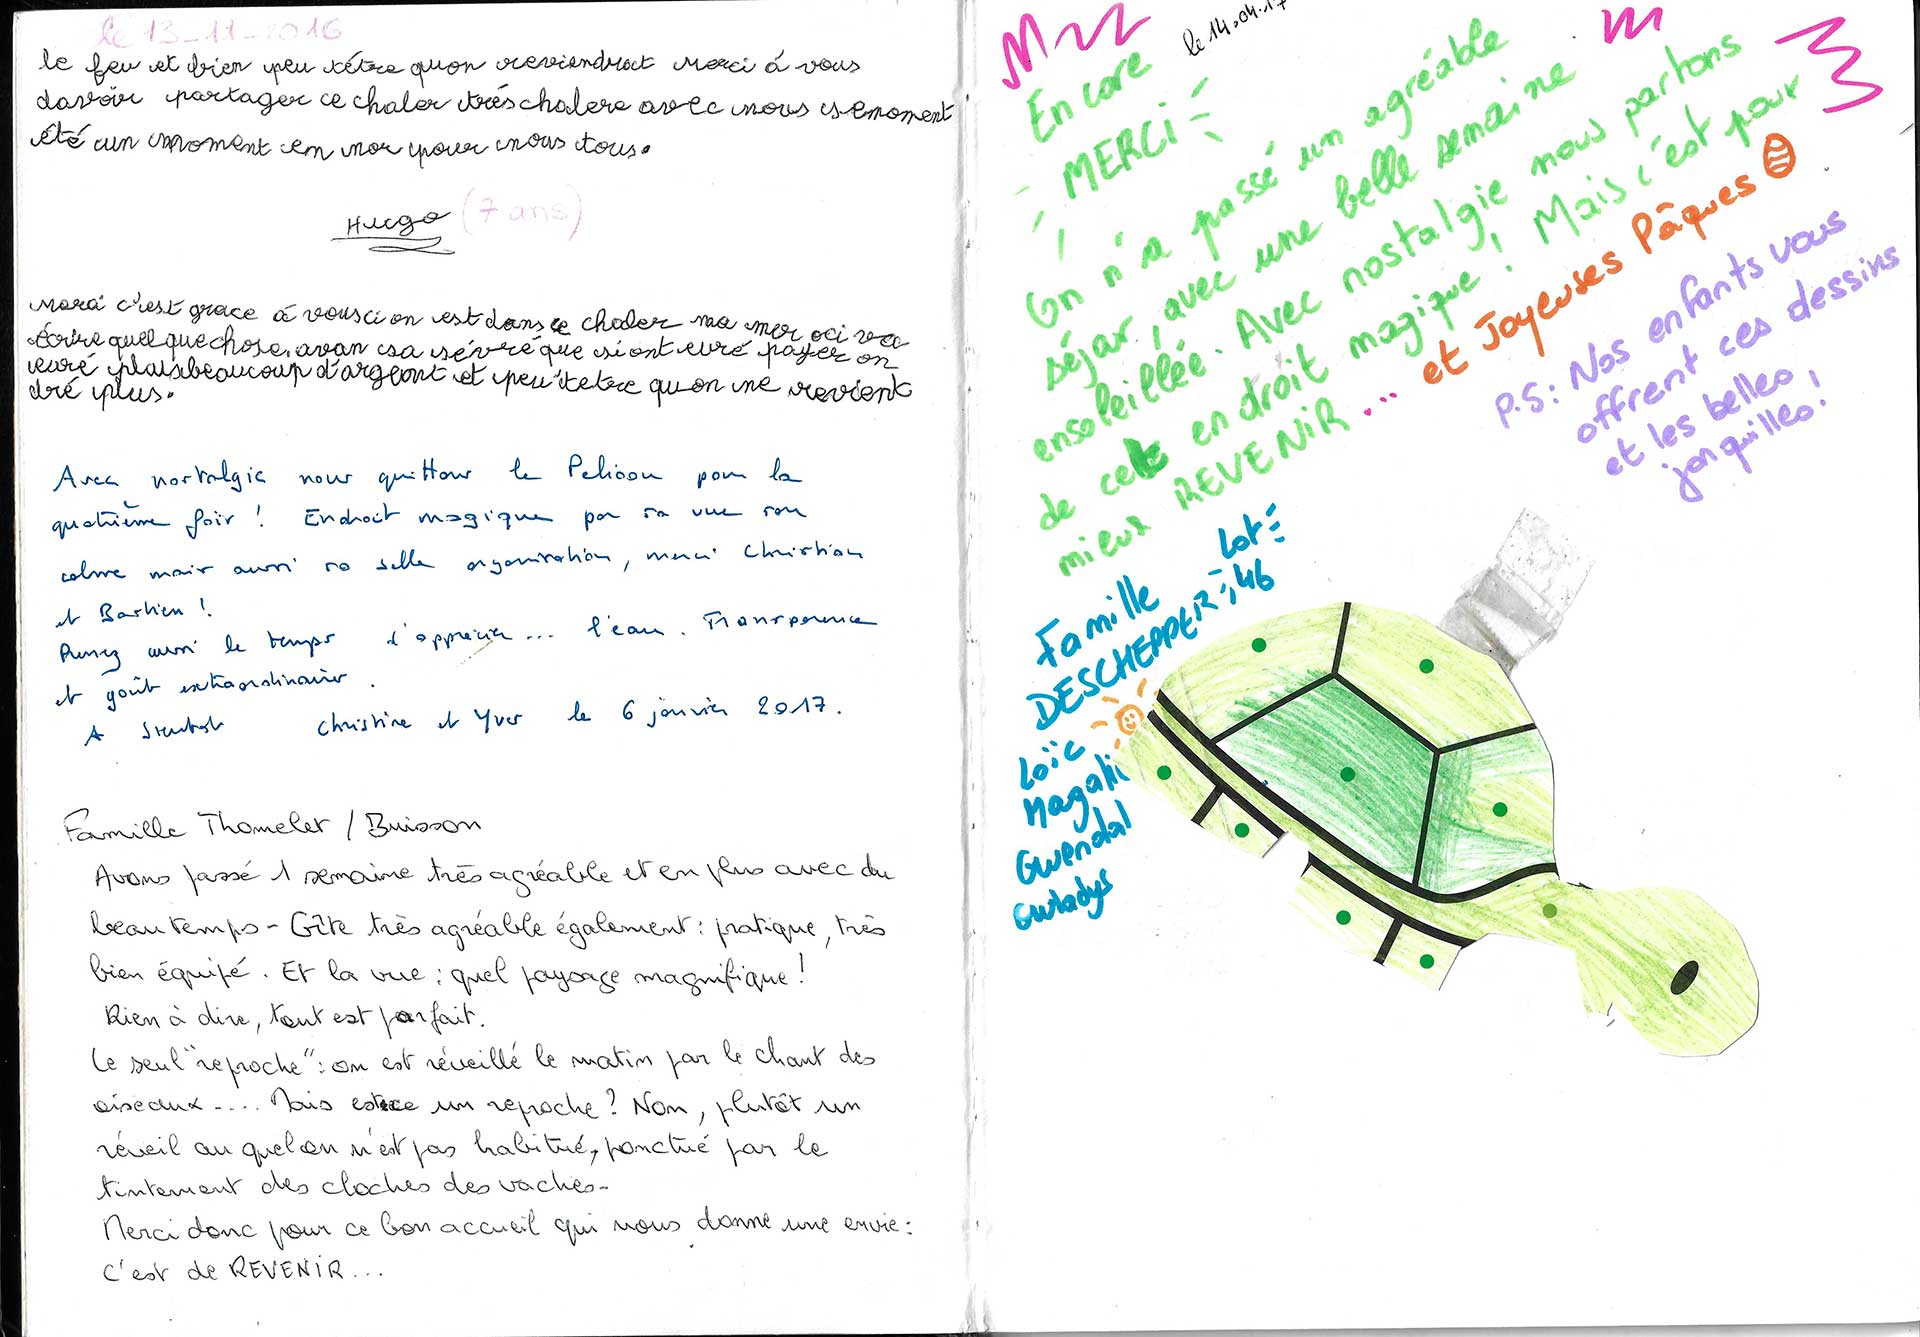 le 13-11-2016
le feu et bien peu têtre quon reviendrat merci á vous
davoir partager ce chaler trés chalere avec nous semoment
été un moment en nor pour nous tous.
Hugo (7 ans)
merci c'est grace á vous ci on est dans ce chaler ma mer oci va
écrire quelque chose. avan sa sévré que si ont euré payer on
euré plus beaucoup d'argeont et peu têtre qu on ne revient
dré plus.
Avec nostalgie nous quittons le Pelison pour la
quatrième fois ! Endroit magique par sa vue son
calme mais aussi sa belle organisation, merci Christian
et Bastien !
Prenez aussi le temps d'apprécier ... l'eau. Transparence
et goût extraordinaires.
A bientôt Christine et Yves le 6 janvier 2017.
Famille Thomelet / Buisson
Avons passé 1 semaine très agréable et en plus avec du
beau temps - Gîte très agréable également : pratique, très
bien équipé. Et la vue : quel paysage magnifique !
Rien à dire, tout est parfait.
Le seul "reproche" : on est réveillé le matin par le chant des
oiseaux .... Mais est ce un reproche ? Non, plutôt un
réveil au quel on n'est pas habitué, ponctué par le
tintement des cloches des vaches -
Merci donc pour ce bon accueil qui nous donne une envie :
c'est de REVENIR ...
le 14.04.17
Encore
MERCI
On n'a passé un agréable
séjar, avec une belle semaine
ensoleillée. Avec nostalgie nous partons
de cet endroit magique ! Mais c'est pour
mieux REVENIR ... et Joyeuses Pâques
P.S : Nos enfants vous
offrent ces dessins
et les belles
jonquilles !
Famille Lot
DESCHEPPER 46
Loïc
Magali
Gwendal
Gwladys